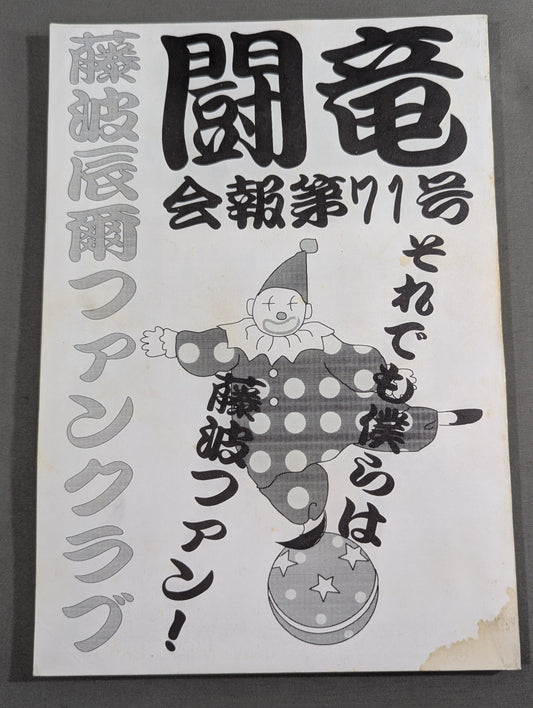 闘竜
会報第71号
藤波辰爾ファンクラブ
それでも僕らは
藤波ファン!